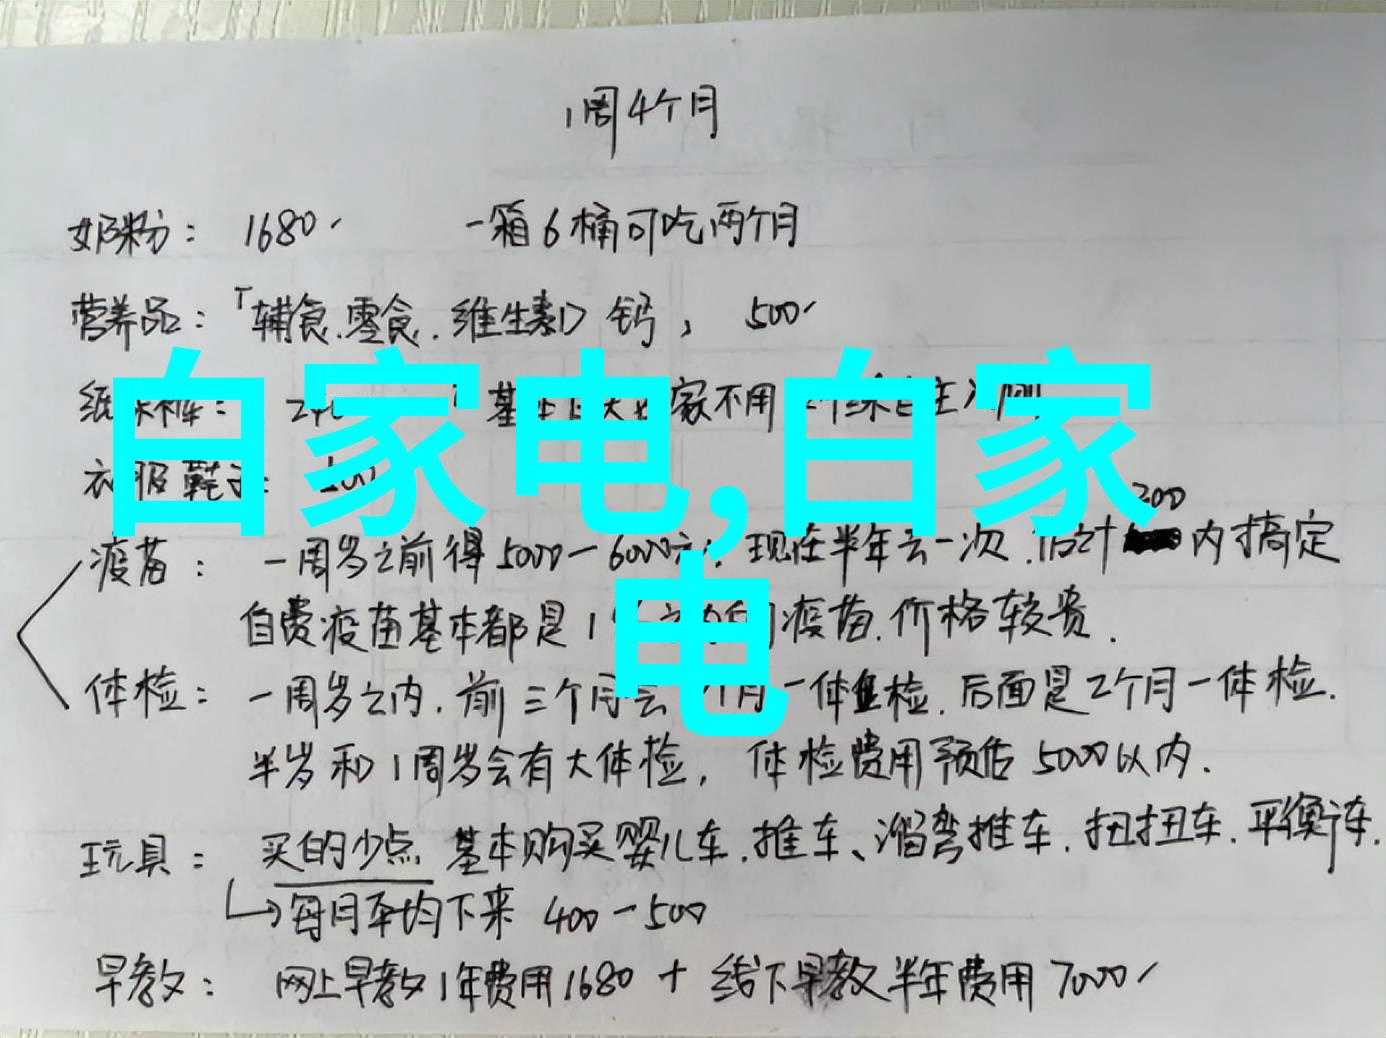 1周4个月
奶粉： 1680 一箱6桶可吃两个月
营养品：「辅食.零食.维生素D 钙， 500
白家电,白家电
纸尿裤： 基本 家不用
衣服鞋子：
200
疫苗： 一周岁之前得5000-6000元 现在半年去一次.估计 内搞定
自费疫苗基本都是1 疫苗.价格较贵.
体检： 一周岁之内.前三个月 个月一体检.后面是2个月一体检.
半岁和1周岁会有大体检， 体检费用预估5000以内.
玩具： 买的少点 基本购买婴儿车.推车、溜弯推车.扭扭车.平衡车.
每月平均下来 400-500
早教： 网上早教1年费用1680 + 线下早教半年费用7000